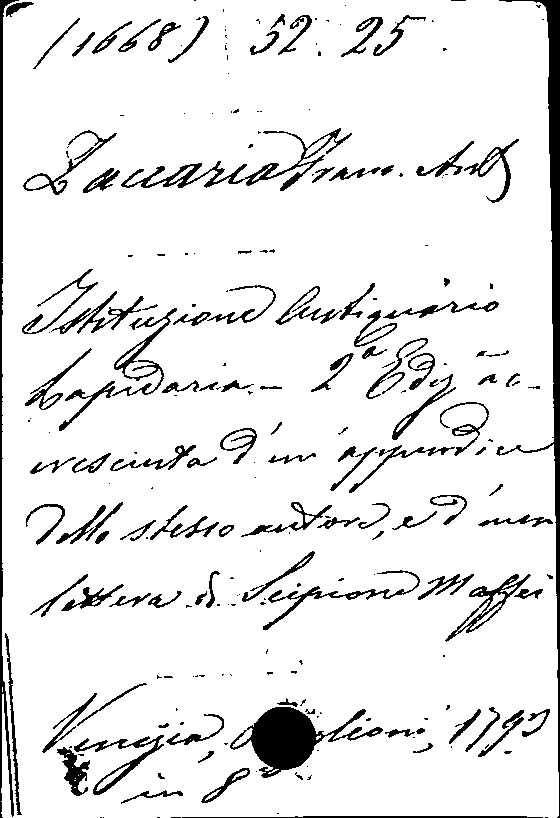 (1668) 52. 25.
Zaccaria Franc. Ant
Istituzione Antiquario
Lapidaria. - 2a Ediz ac-
cresciuta d'un' appendice
dello stesso autore, e d'una
lettera di Scipione Maffei
Venezia, 1793
in 8o